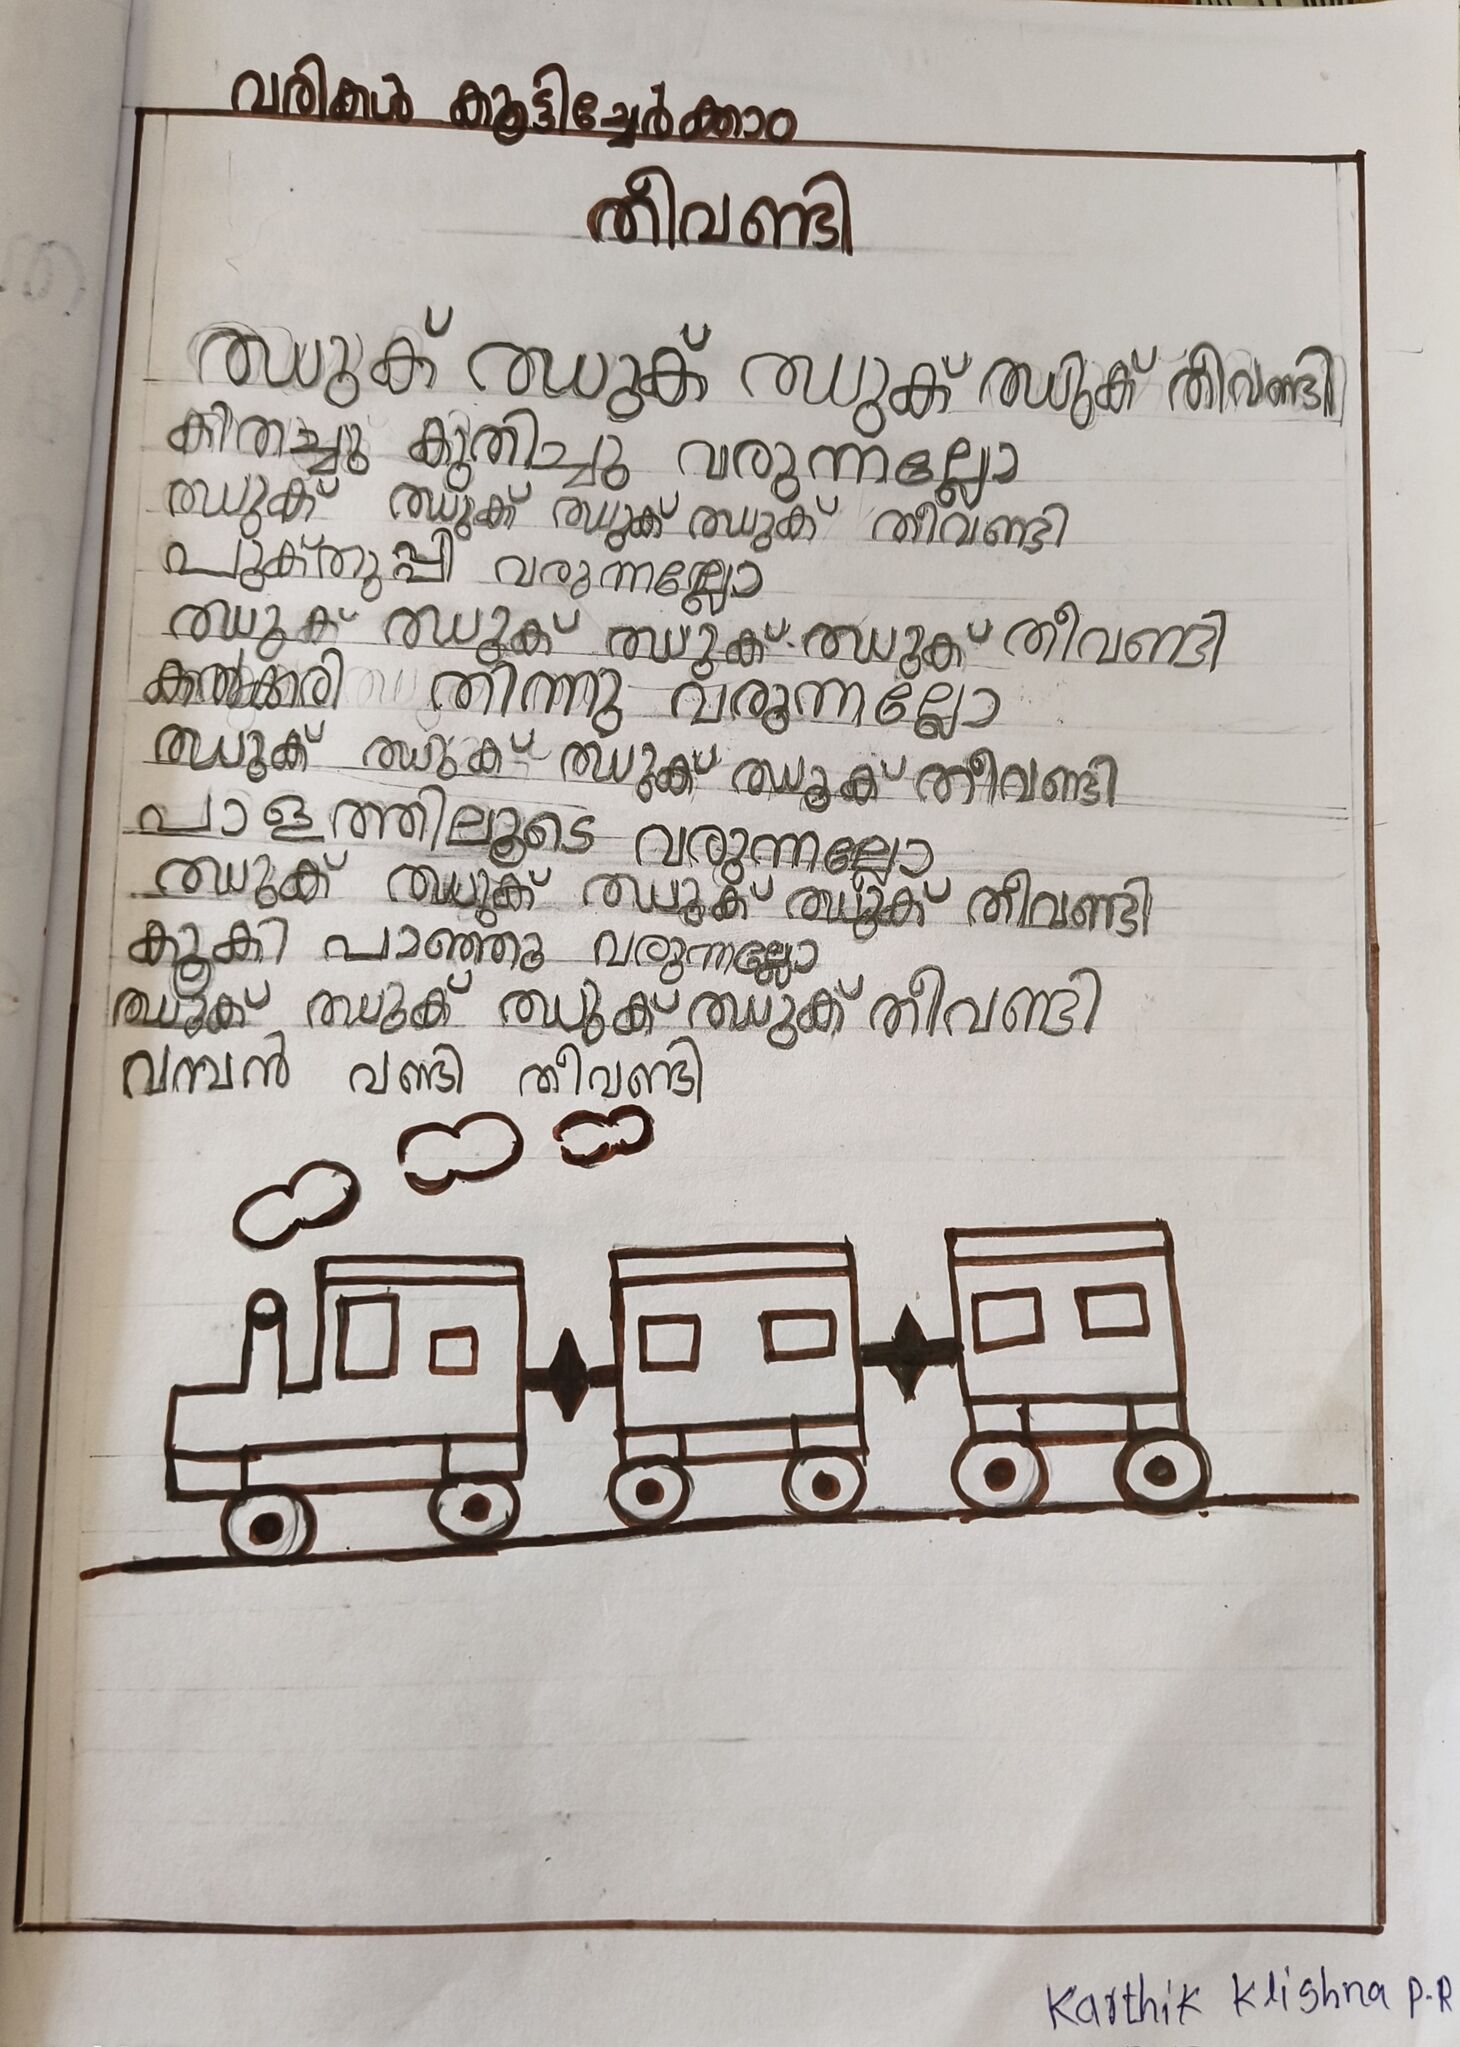 വരികൾ കൂട്ടിച്ചേർക്കാം
തീവണ്ടി
ഝുക് ഝുക് ഝുക് ഝുക് തീവണ്ടി
കിതച്ചു കുതിച്ചു വരുന്നല്ലോ
ഝുക് ഝുക് ഝുക് ഝുക് തീവണ്ടി
പുക്തുപ്പി വരുന്നല്ലോ
ഝുക് ഝുക് ഝുക് ഝുക് തീവണ്ടി
കൽക്കരി തിന്നു വരുന്നല്ലോ
ഝുക് ഝുക് ഝുക് ഝുക് തീവണ്ടി
പാളത്തിലൂടെ വരുന്നല്ലോ
ഝുക് ഝുക് ഝുക് ഝുക് തീവണ്ടി
കൂകി പാഞ്ഞു വരുന്നല്ലോ
ഝുക് ഝുക് ഝുക് ഝുക് തീവണ്ടി
വമ്പൻ വണ്ടി തീവണ്ടി
Karthik Klishna P.R